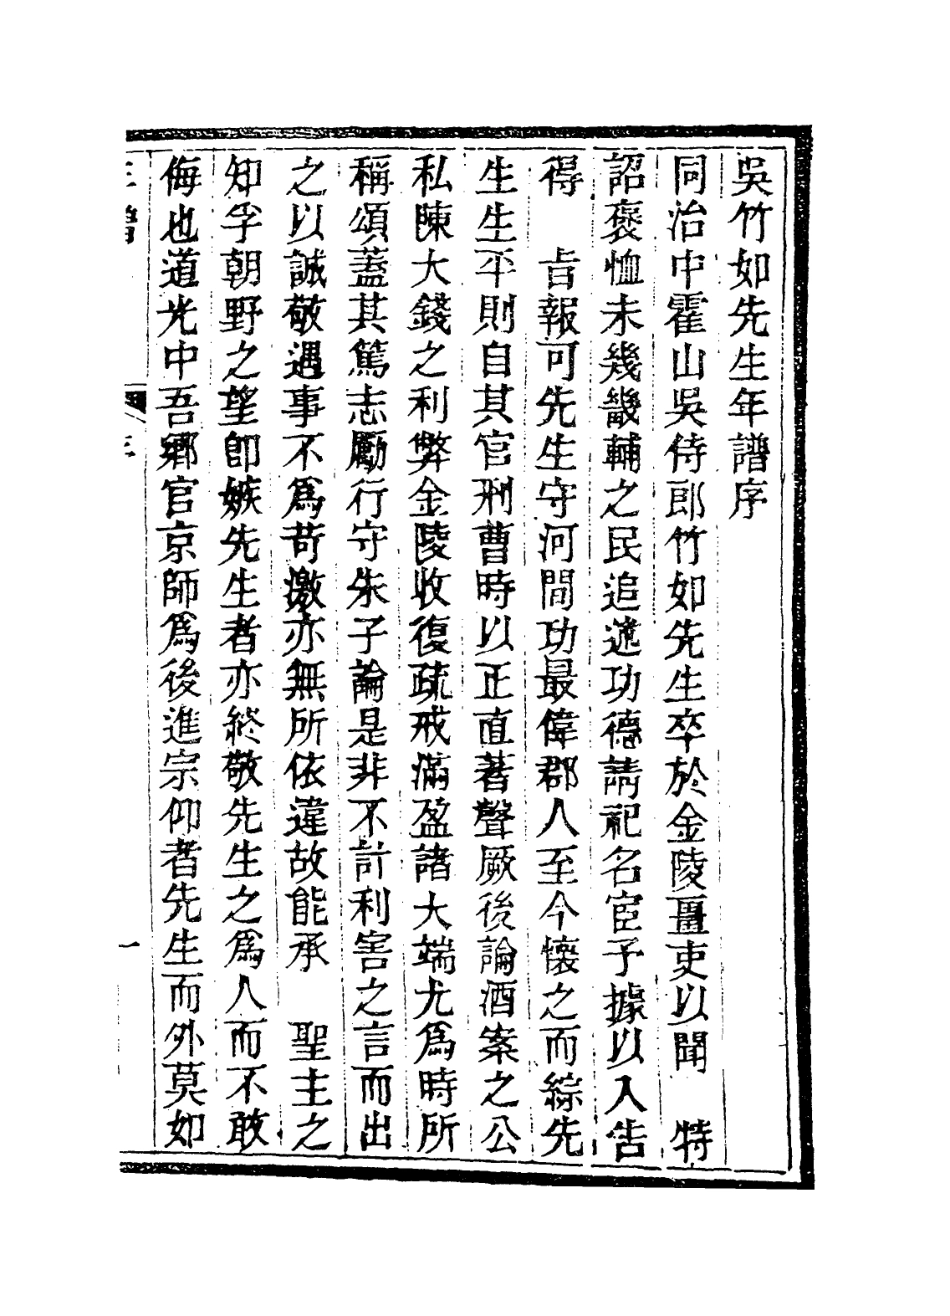 吳竹如先生年譜序
同治中霍山吳侍郎竹如先生卒於金陵畺吏以聞　特
詔褒恤未幾畿輔之民追述功德請祀名宦予據以入告
得　旨報可先生守河間功最偉郡人至今懷之而綜先
生生平則自其官刑曹時以正直著聲厥後論酒案之公
私陳大錢之利弊金陵收復疏戒滿盈諸大端尤爲時所
稱頌蓋其篤志勵行守朱子論是非不計利害之言而出
之以誠敬遇事不爲苛激亦無所依違故能承　聖主之
知孚朝野之望卽嫉先生者亦終敬先生之爲人而不敢
侮也道光中吾鄉官京師爲後進宗仰者先生而外莫如